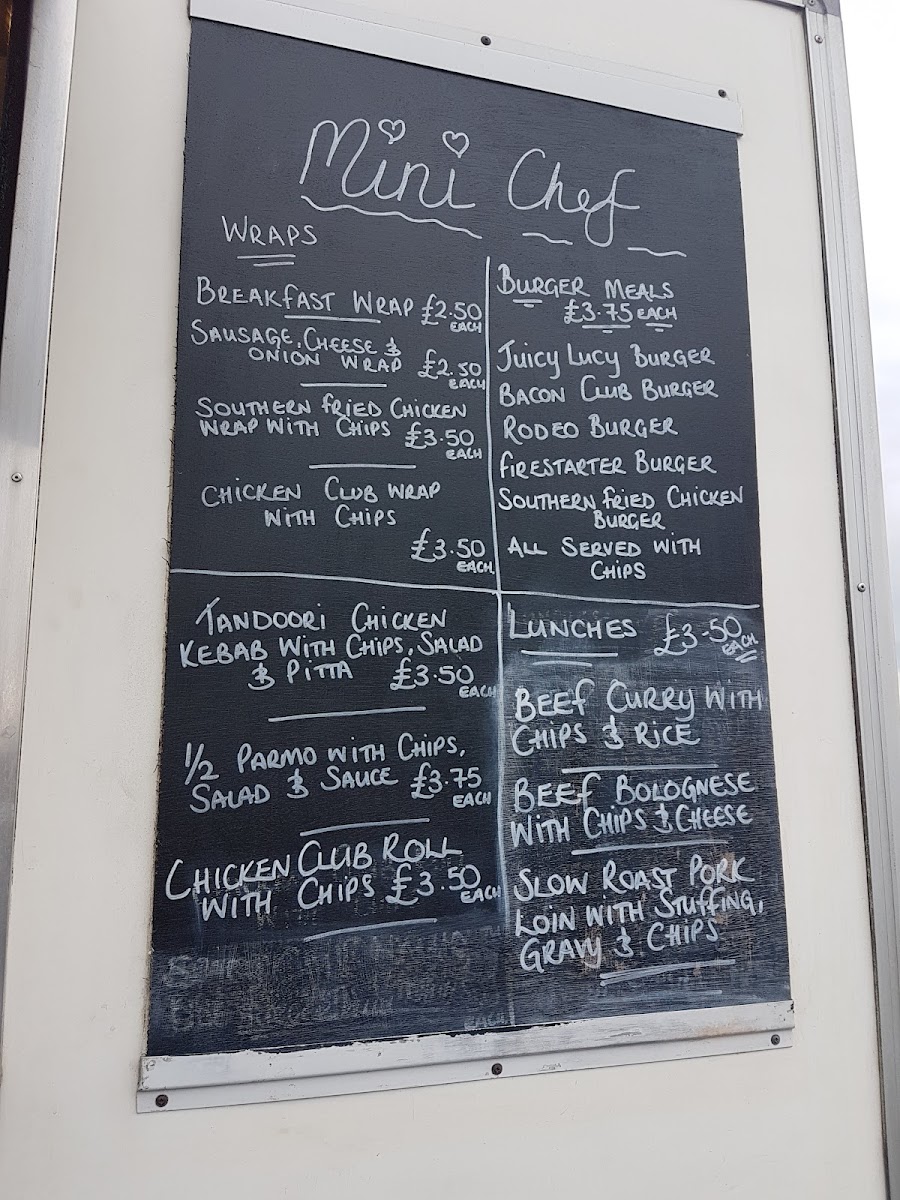 Mini Chef
WRAPS
BREAKFAST WRAP £2.50
EACH
SAUSAGE, CHEESE &
ONION WRAP £2.50
EACH
SOUTHERN FRIED CHICKEN
WRAP WITH CHIPS £3.50
EACH
CHICKEN CLUB WRAP
WITH CHIPS
£3.50
EACH
BURGER MEALS
£3.75 EACH
JUICY LUCY BURGER
BACON CLUB BURGER
RODEO BURGER
FIRESTARTER BURGER
SOUTHERN FRIED CHICKEN
BURGER
ALL SERVED WITH
CHIPS
TANDOORI CHICKEN
KEBAB WITH CHIPS, SALAD
& PITTA £3.50
EACH
1/2 PARMO WITH CHIPS,
SALAD & SAUCE £3.75
EACH
CHICKEN CLUB ROLL
WITH CHIPS £3.50
EACH
EACH
LUNCHES £3.50
EACH
BEEF CURRY WITH
CHIPS & RICE
BEEF BOLOGNESE
WITH CHIPS & CHEESE
SLOW ROAST PORK
LOIN WITH STUFFING,
GRAVY & CHIPS